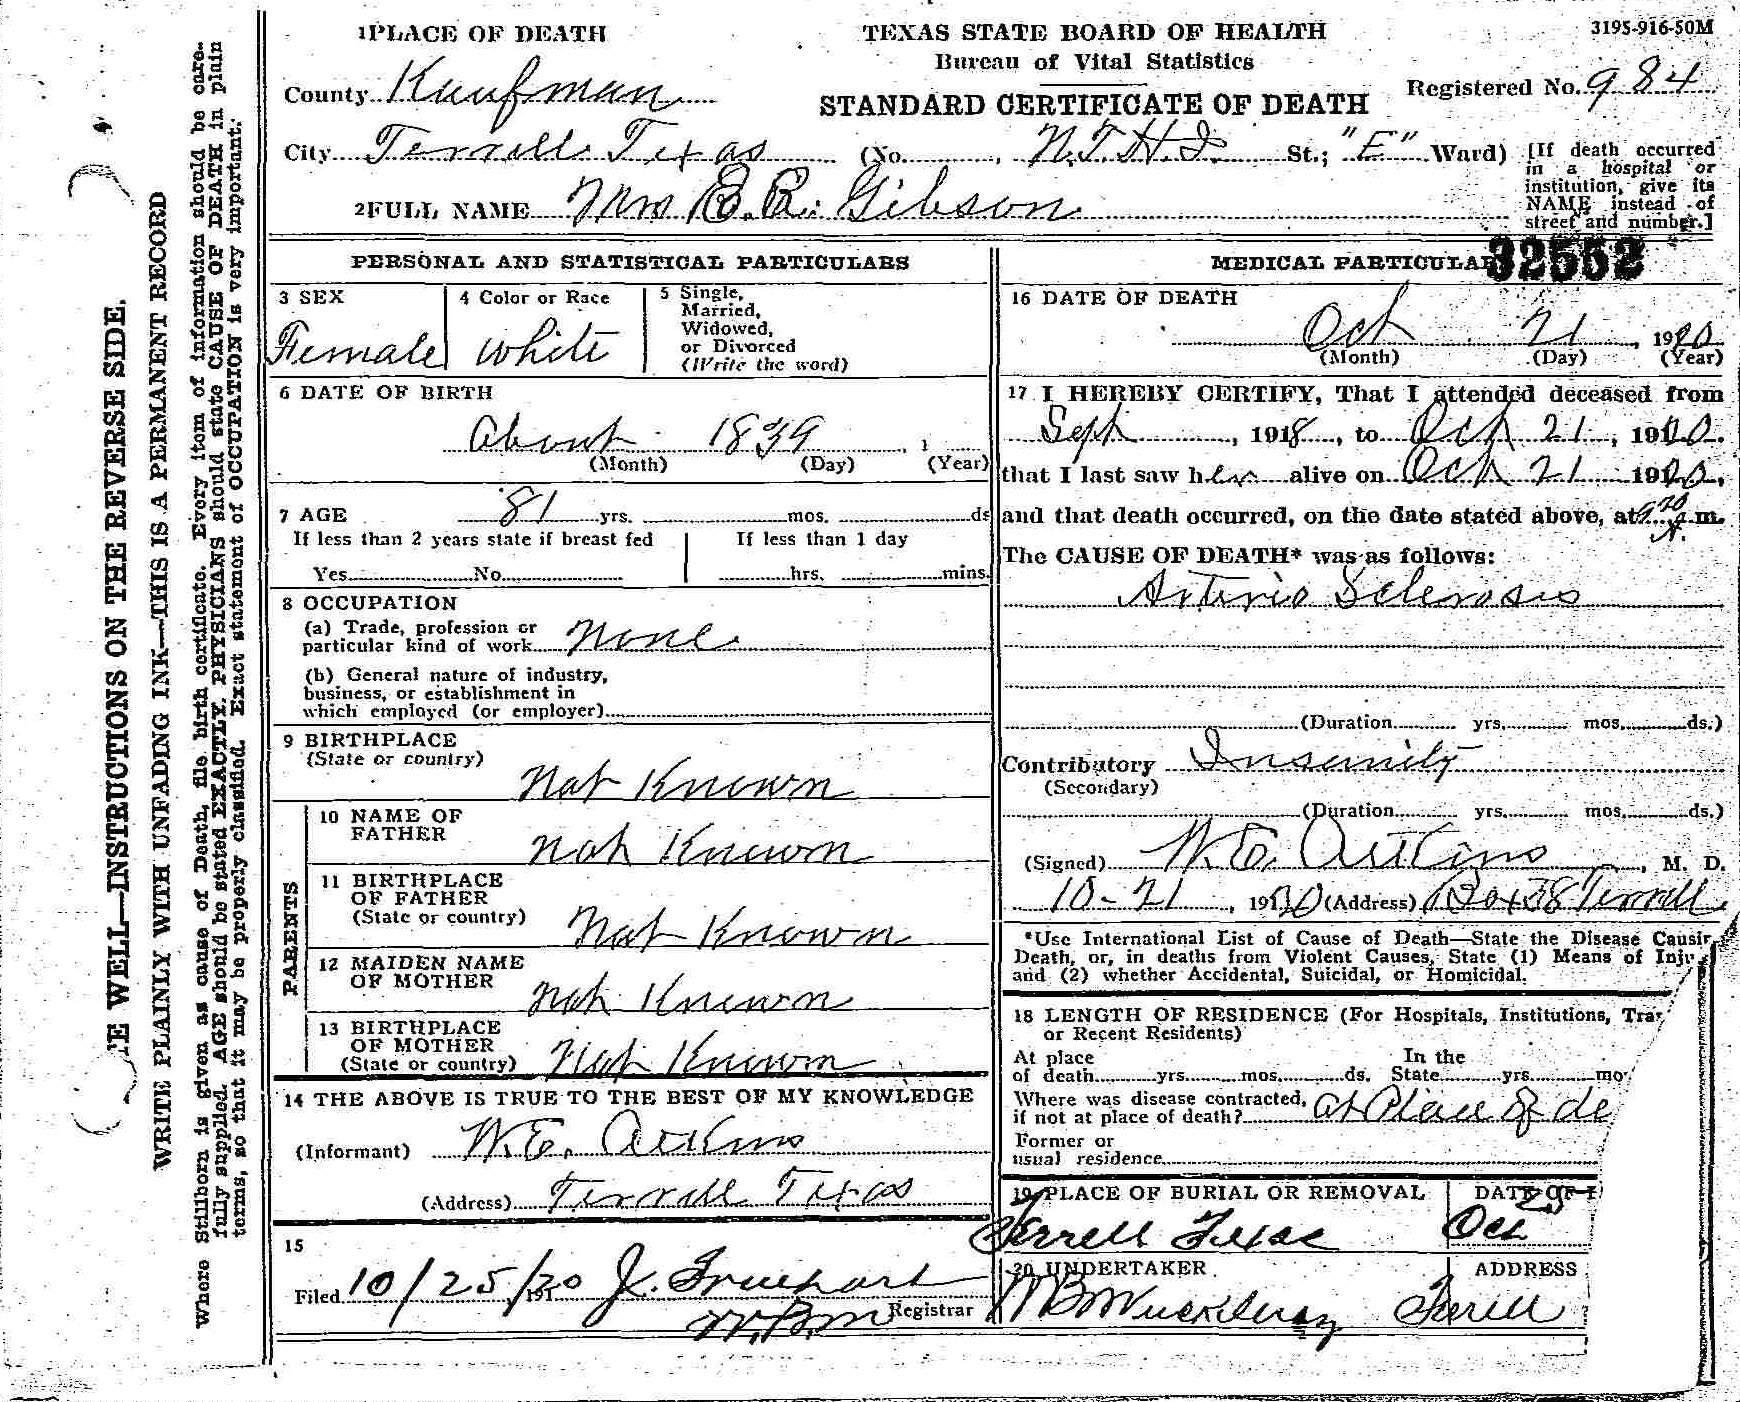 1 PLACE OF DEATH
TEXAS STATE BOARD OF HEALTH
3195-916-50M
Bureau of Vital Statistics
County Kaufman
STANDARD CERTIFICATE OF DEATH
Registered No. 984
City Terrell Texas (No. , N.T.H.I. St.; "E" Ward)
[If death occurred
in a hospital or
institution, give its
NAME instead of
street and number.]
2 FULL NAME Mrs E.R. Gibson
32552
PERSONAL AND STATISTICAL PARTICULARS
3 SEX
Female
4 Color or Race
White
5 Single,
Married,
Widowed,
or Divorced
(Write the word)
6 DATE OF BIRTH
About 1839 , 1
(Month) (Day) (Year)
7 AGE 81 yrs. mos. ds
If less than 2 years state if breast fed
Yes No
If less than 1 day
hrs. mins.
8 OCCUPATION
(a) Trade, profession or
particular kind of work None
(b) General nature of industry,
business, or establishment in
which employed (or employer)
9 BIRTHPLACE
(State or country)
Not Known
PARENTS
10 NAME OF
FATHER
Not Known
11 BIRTHPLACE
OF FATHER
(State or country)
Not Known
12 MAIDEN NAME
OF MOTHER
Not Known
13 BIRTHPLACE
OF MOTHER
(State or country)
Not Known
14 THE ABOVE IS TRUE TO THE BEST OF MY KNOWLEDGE
(Informant) W.E. Atkins
(Address) Terrell Texas
15
Filed 10/25/20 191 J. Truehart
W.B.M Registrar
MEDICAL PARTICULAR
16 DATE OF DEATH
Oct 21 , 1920
(Month) (Day) (Year)
17 I HEREBY CERTIFY, That I attended deceased from
Sept , 1918, to Oct 21, 1920.
that I last saw her alive on Oct 21 1920,
and that death occurred, on the date stated above, at 9 20 A. m.
The CAUSE OF DEATH* was as follows:
Arterio Sclerosis
(Duration yrs. mos. ds.)
Contributory Insanity
(Secondary)
(Duration yrs. mos. ds.)
(Signed) W.E. Atkins, M. D.
10-21, 1920 (Address) Box 38 Terrell
*Use International List of Cause of Death—State the Disease Causin
Death, or, in deaths from Violent Causes, State (1) Means of Inju
and (2) whether Accidental, Suicidal, or Homicidal.
18 LENGTH OF RESIDENCE (For Hospitals, Institutions, Tra
or Recent Residents)
At place
of death yrs. mos. ds.
In the
State yrs. mo
Where was disease contracted,
if not at place of death? at Place of de
Former or
usual residence
19 PLACE OF BURIAL OR REMOVAL
Terrell Texas
DATE OF
Oct 25
20 UNDERTAKER
ADDRESS
Terrell
WRITE PLAINLY WITH UNFADING INK—THIS IS A PERMANENT RECORD
E WELL—INSTRUCTIONS ON THE REVERSE SIDE.
Where Stillborn is given as cause of Death, file birth certificate. Every item of information should be care-
fully supplied. AGE should be stated EXACTLY. PHYSICIANS should state CAUSE OF DEATH in plain
terms, so that it may be properly classified. Exact statement of OCCUPATION is very important.